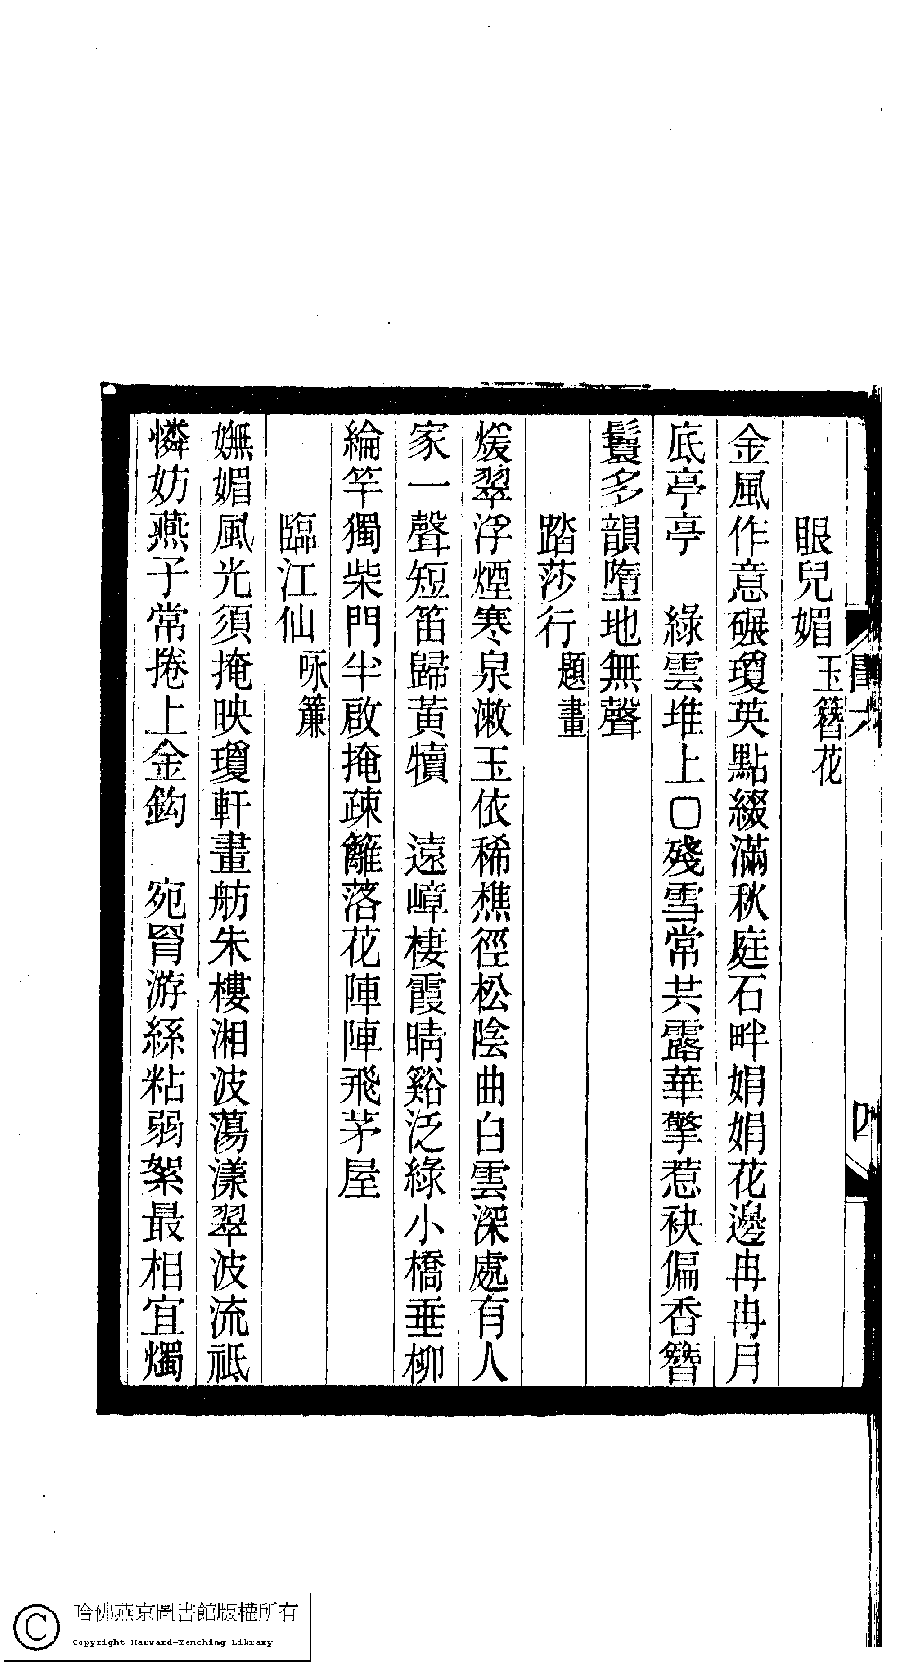 眼兒媚 玉簪花
金風作意碾瓊英點綴滿秋庭石畔娟娟花邊冉冉月
底亭亭　綠雲堆上□殘雪常共露華擎惹袂偏香簪
鬟多韻墮地無聲
踏莎行 題畫
煖翠浮煙寒泉漱玉依稀樵徑松陰曲白雲深處有人
家一聲短笛歸黃犢　遠嶂棲霞晴谿泛綠小橋垂柳
綸竿獨柴門半啟掩疎籬落花陣陣飛茅屋
臨江仙 咏簾
嫵媚風光須掩映瓊軒畫舫朱樓湘波蕩漾翠波流祗
憐妨燕子常捲上金鈎　宛胃游絲粘弱絮最相宜燭
四
哈佛燕京圖書館版權所有
Copyright Harvard-Yenching Library